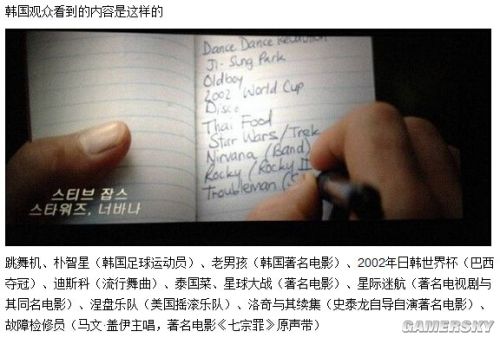 韩国观众看到的内容是这样的
Dance Dance Revolution
Ji-Sung Park
Oldboy
2002 World Cup
Disco
Thai Food
Star Wars/Trek
Nirvana (Band)
Rocky (Rocky II
Troubleman (S
스티브 잡스
스타워즈, 너바나
跳舞机、朴智星（韩国足球运动员）、老男孩（韩国著名电影）、2002年日韩世界杯（巴西
夺冠）、迪斯科（流行舞曲）、泰国菜、星球大战（著名电影）、星际迷航（著名电视剧与
其同名电影）、涅盘乐队（美国摇滚乐队）、洛奇与其续集（史泰龙自导自演著名电影）、
故障检修员（马文·盖伊主唱，著名电影《七宗罪》原声带）
GAMERSKY